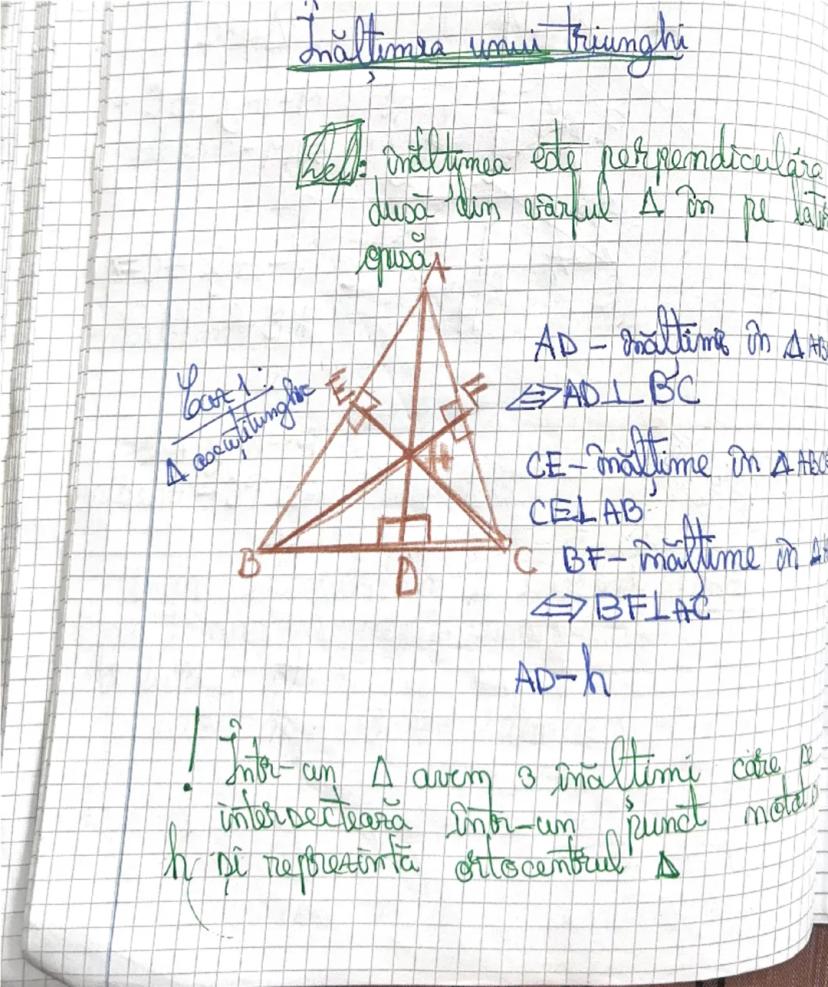 Înălțimea unui triunghi
Def: înălțimea este perpendiculara
dusă din vârful Δ în pe
opusă
A
AD - înălțime în Δ AB
Caz 1:
E
F
⇔ AD⊥BC
Δ ascuțitunghic
H
CE - înălțime în Δ ABC
CE⊥AB
B
D
C
BF - înălțime în Δ
⇔ BF⊥AC
AD - h
! Într-un Δ avem 3 înălțimi care
intersectează într-un punct notat
h și reprezintă ortocentrul Δ